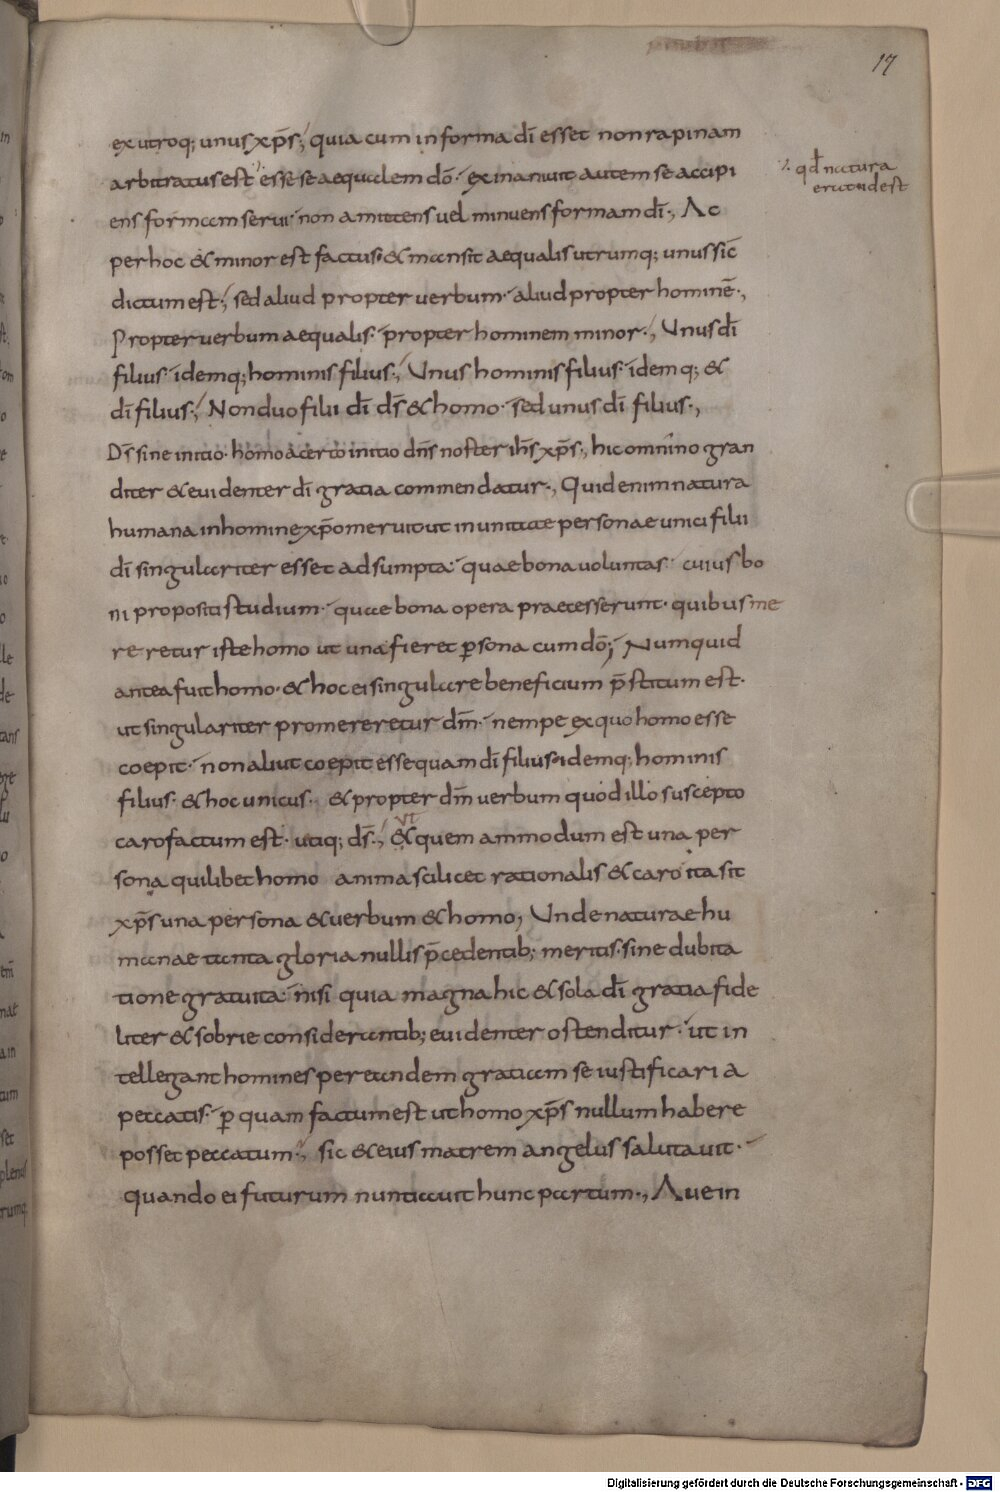 17
ex utroq; unus xp̄s; quia cum in forma dī esset non rapinam
arbitratus est esse se aequalem dō· exinaniuit autem se accipi
⁒ qđ natura
erat id est
ens formam serui· non amittens uel minuens formam dī·, Ac
per hoc & minor est factus· & mansit aequalis utrumq; unus sic̄
dictum est·, sed aliud propter uerbum· aliud propter hominē·,
Propter uerbum aequalis· propter hominem minor·, Unus dī
filius· idemq; hominis filius·, Unus hominis filius· idemq; &
dī filius·, Non duo filii dī ds̄ & homo· sed unus dī filius·,
Ds̄ sine initio· homo a certo initio dn̄s noster ih̄s xp̄s·, hic omnino gran
diter & euidenter dī gratia commendatur·, Quid enim natura
humana in homine xp̄o meruit ut in unitate personae unici filii
dī singulariter esset adsumpta· quae bona uoluntas· cuius bo
ni propositi studium· quae bona opera praecesserunt· quibus me
reretur iste homo ut una fieret p̱sona cum dō; Numquid
antea fuit homo· & hoc ei singulare beneficium p̄stitum est·
ut singulariter promereretur dm̄· nempe ex quo homo esse
coepit· non aliut coepit esse quam dī filius· idemq; hominis
filius· & hoc unicus· & propter dm̄ uerbum quod illo suscepto
caro factum est· utiq; ds̄·, &
ut
quem ammodum est una per
sona quilibet homo anima scilicet rationalis & caro ita sit
xp̄s una persona & uerbum & homo, Unde naturae hu
manae tanta gloria nullis p̄cedentib; meritis· sine dubita
tione gratuita· nisi quia magna hic & sola dī gratia fide
liter & sobrie considerantib; euidenter ostenditur· ut in
tellegant homines per eandem gratiam se iustificari a
peccatis· p̱ quam factum est ut homo xp̄s nullum habere
posset peccatum·, sic & eius matrem angelus salutauit·
quando ei futurum nuntiauit hunc partum·, Aue in
Digitalisierung gefördert durch die Deutsche Forschungsgemeinschaft - DFG